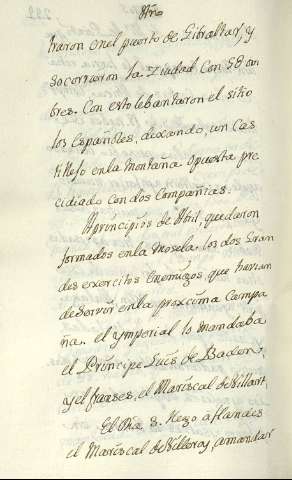 Año
traron en el puerto de Gibraltar, y
socorrieron la Ziudad con 58 om
bres. Con esto lebantaron el sitio
los Españoles, dexando, un Cas
tillejo en la Montaña Opuesta pre
cidiado con dos Compañias.
A principios de Abril, quedaron
formados en la Mosela, los dos Gran
des exercitos Enemigos, que havian
de servir en la proxcima Campa
ña. el Ymperial lo mandaba
el Principe Luis de Baden,
y el franses, el Mariscal de Villart,
El Dia 3. llego a flandes
el Mariscal de Villeroy, a mandar